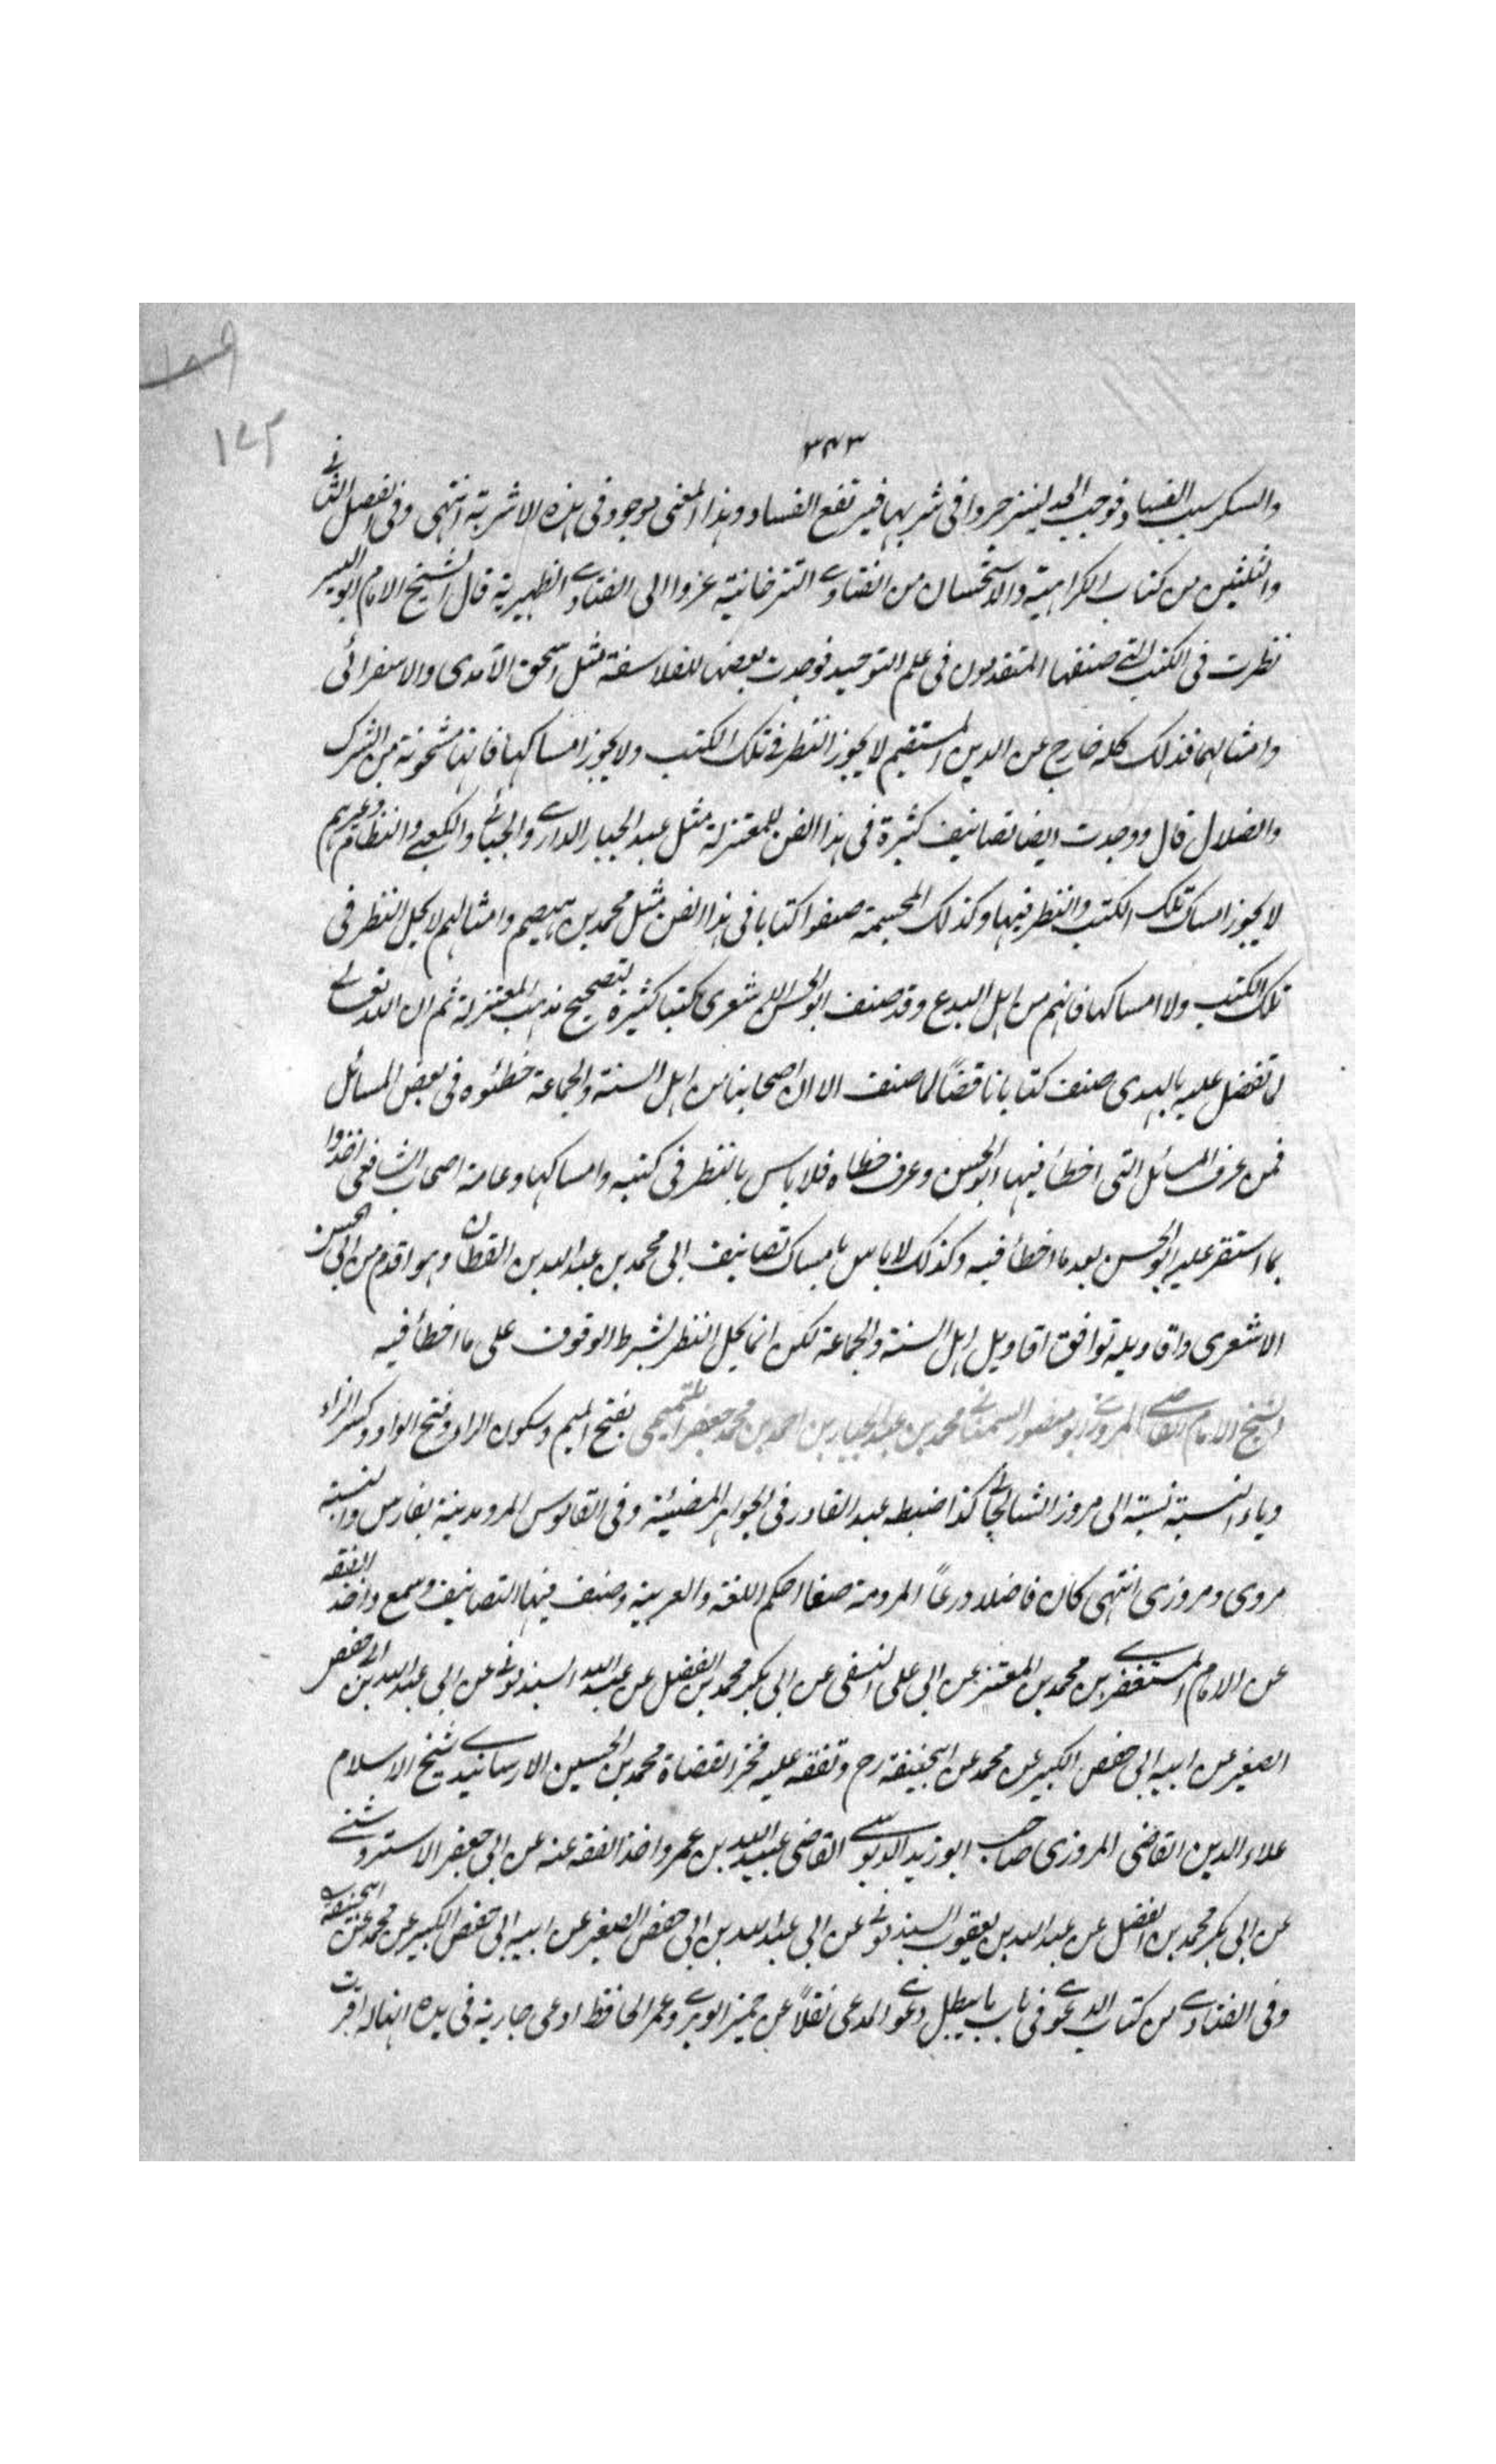 ١٤٣
٣٤٣
والسكر سبب الفساد فوجب الحد لينزجروا فى شربها فيرتفع الفساد وهذا المعنى موجود فى هذه الاشربة انتهى وفى الفصل الثانى
والثلثين من كتاب الكراهية والاستحسان من الفتاوى التترخانية عزوا الى الفتاوى الظهيرية قال الشيخ الامام ابو اليسر
نظرت فى الكتب التى صنفها المتقدمون فى علم التوحيد فوجدت بعضها للفلاسفة مثل اسحق الآمدى والاسفرائى
وامثالهما فذلك كله خارج عن الدين المستقيم لا يجوز النظر فى تلك الكتب ولا يجوز امساكها فانها مشحونة من الشرك
والضلال قال ووجدت ايضا تصانيف كثيرة فى هذا الفن للمعتزلة مثل عبد الجبار الدارى والجبائى والكعبى والنظام وغيرهم
لا يجوز امساك تلك الكتب والنظر فيها وكذلك المجسمة صنفوا كتابا فى هذا الفن مثل محمد بن هيصم وامثالهم لا يحل النظر فى
تلك الكتب ولا امساكها فانهم من اهل البدع وقد صنف ابو الحسن الاشعرى كتبا كثيرة لتصحيح مذهب المعتزلة ثم ان الله تعالى
لما تفضل عليه بالهدى صنف كتابا ناقضاً لما صنف الا ان اصحابنا من اهل السنة والجماعة خطئوه فى بعض المسائل
فمن عرف المسائل التى اخطأ فيها ابو الحسن وعرف خطاه فلا باس بالنظر فى كتبه وامساكها وعامة اصحاب الشافعى اخذوا
بما استقر عليه ابو الحسن بعد ما اخطأ فيه وكذلك لا باس بامساك تصانيف ابى محمد بن عبد الله بن القطان وهو اقدم من ابى الحسن
الاشعرى واقاويله توافق اقاويل اهل السنة والجماعة لكن انما يحل النظر بشرط الوقوف على ما اخطأ فيه
الشيخ الامام القاضى المروزى ابو منصور السمعانى محمد بن عبد الجبار بن احمد بن محمد جعفر التميمى بفتح الميم وسكون الراء وفتح الواو وكسر الزاء
وياء النسبة نسبة الى مروز الشاهجان كذا ضبطه عبد القادر فى الجواهر المضيئة وفى القاموس المرو مدينة بفارس والنسبة
مروى ومروزى انتهى كان فاضلا ورعاً احكم اللغة والعربية وصنف فيها التصانيف وسمع واخذ الفقه
عن الامام المستغفرى بن محمد بن المعتز عن ابى على النسفى عن ابى بكر محمد بن الفضل عن عبد الله السبذمونى عن ابى عبد الله بن ابى حفص
الصغير عن ابيه ابى حفص الكبير عن محمد عن ابيحنيفة رح وتفقه عليه فخر القضاة محمد بن الحسين الارسابندى شيخ الاسلام
علاء الدين القاضى المروزى صاحب ابو زيد الدبوسى القاضى عبيد الله بن عمر واخذ الفقه عنه عن ابى جعفر الاستروشنى
عن ابى بكر محمد بن الفضل عن عبد الله بن يعقوب السبذمونى عن ابى عبد الله بن ابى حفص الصغير عن ابيه ابى حفص الكبير عن محمد عن ابيحنيفة
وفى الفتاوى من كتاب الدعوى فى باب ما يبطل دعوى المدعى نقلاً عن حميز الوبرى وعمر الحافظ ادعى جارية فى يده انها له اقرت